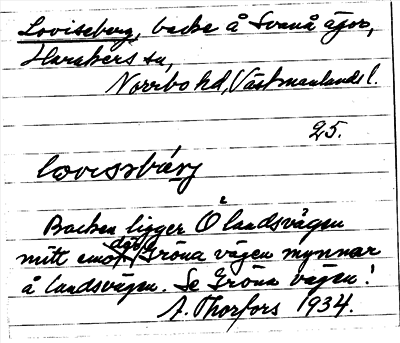 Loviseberg, backe å Svanå ägor,
Harakers sn,
Norrbo hd, Västmanlands l.
25.
Backen ligger å landsvägen
mitt emot där Gröna vägen mynnar
å landsvägen. Se Gröna vägen!
A. Thorfors 1934.